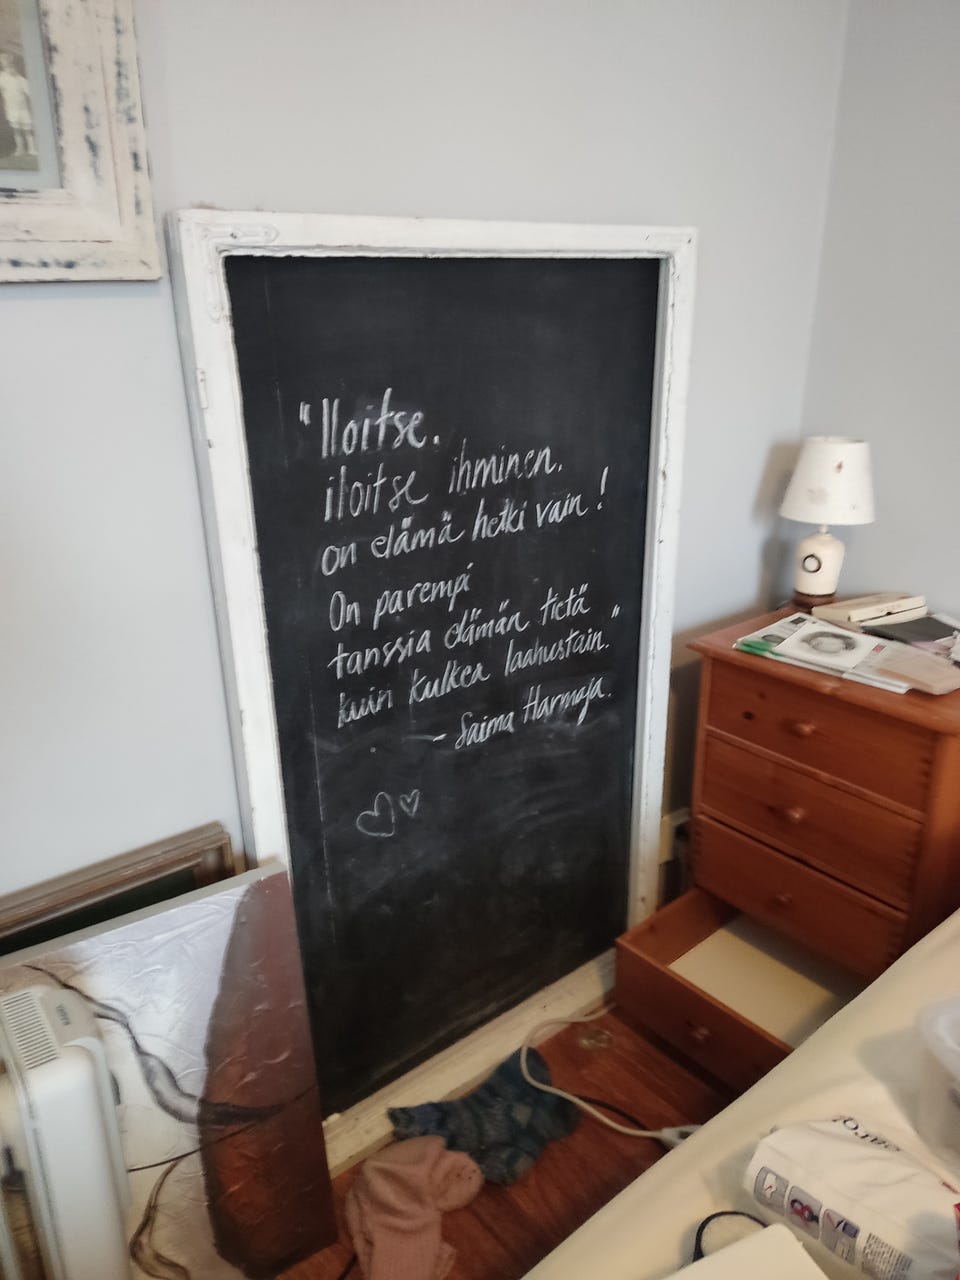 "Iloitse.
iloitse ihminen.
on elämä hetki vain!
On parempi
tanssia elämän tietä
kuin kulkea laahustain."
- Saima Harmaja.